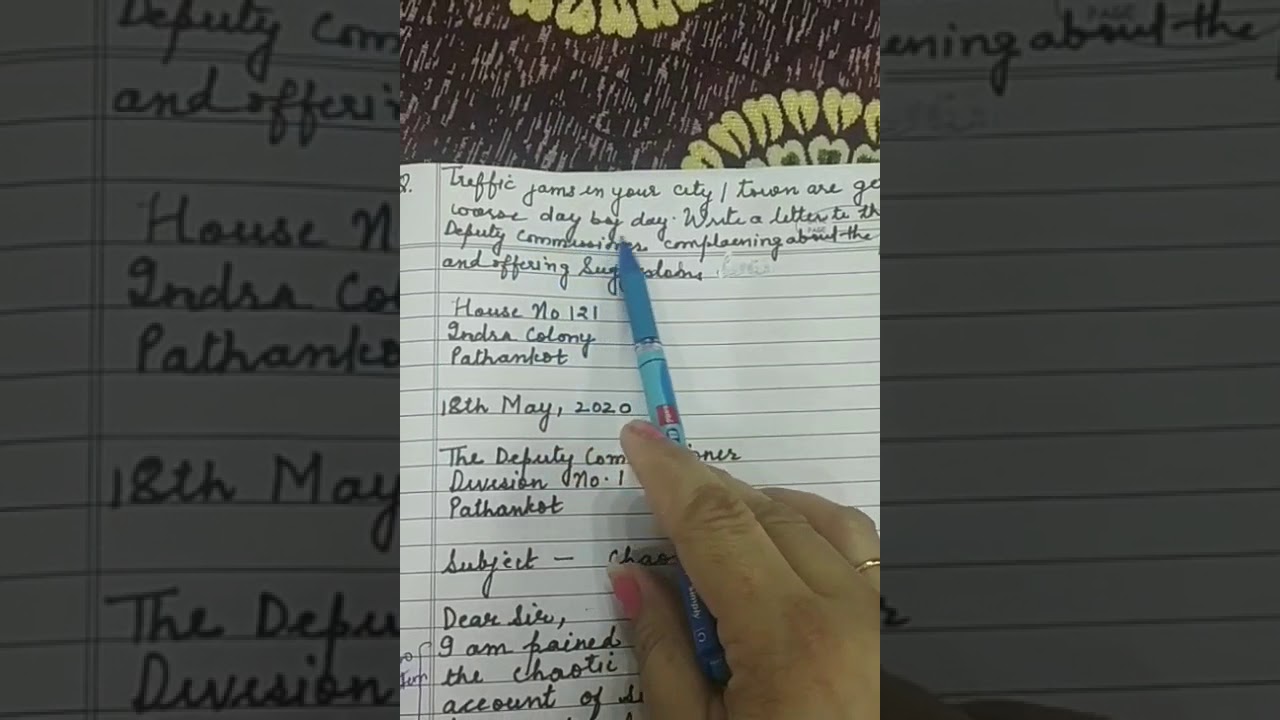 Q. Treffic jams in your city / town are ge
worse day by day. Write a letter to th
Deputy Commissioner complaening about the
and offering
House No 121
Indra Colony
Pathankot
18th May, 2020
The Deputy Com oner
Division No. 1
Pathankot
Subject - Chao
Dear Sir,
I am pained
the chaotic
account of